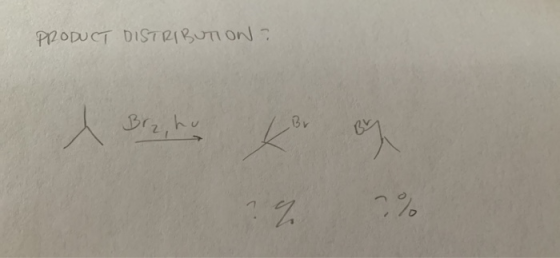 PRODUCT DISTRIBUTION:
Br2, hν
Br
Br
?%
?%